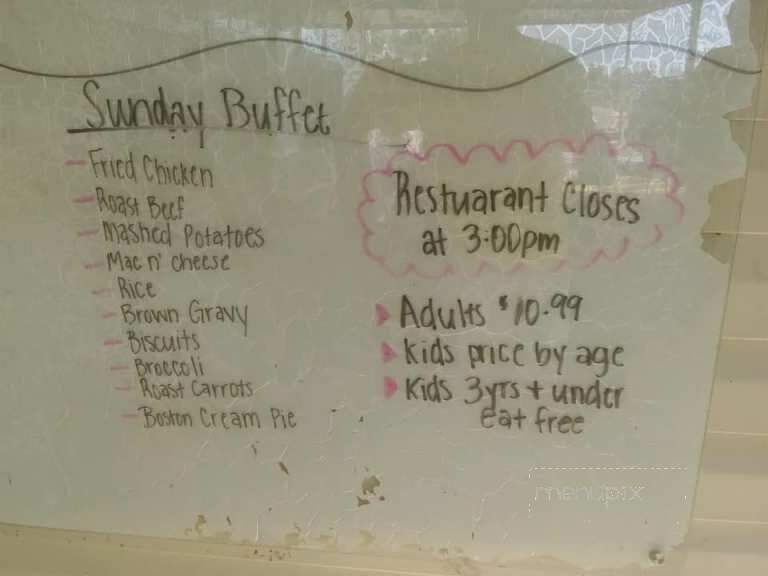 Sunday Buffet
- Fried Chicken
- Roast Beef
- Mashed Potatoes
- Mac n' cheese
- Rice
- Brown Gravy
- Biscuits
- Broccoli
- Roast Carrots
- Boston Cream Pie
Restuarant Closes
at 3:00pm
Adults $10.99
Kids price by age
Kids 3yrs + under
eat free
menupix